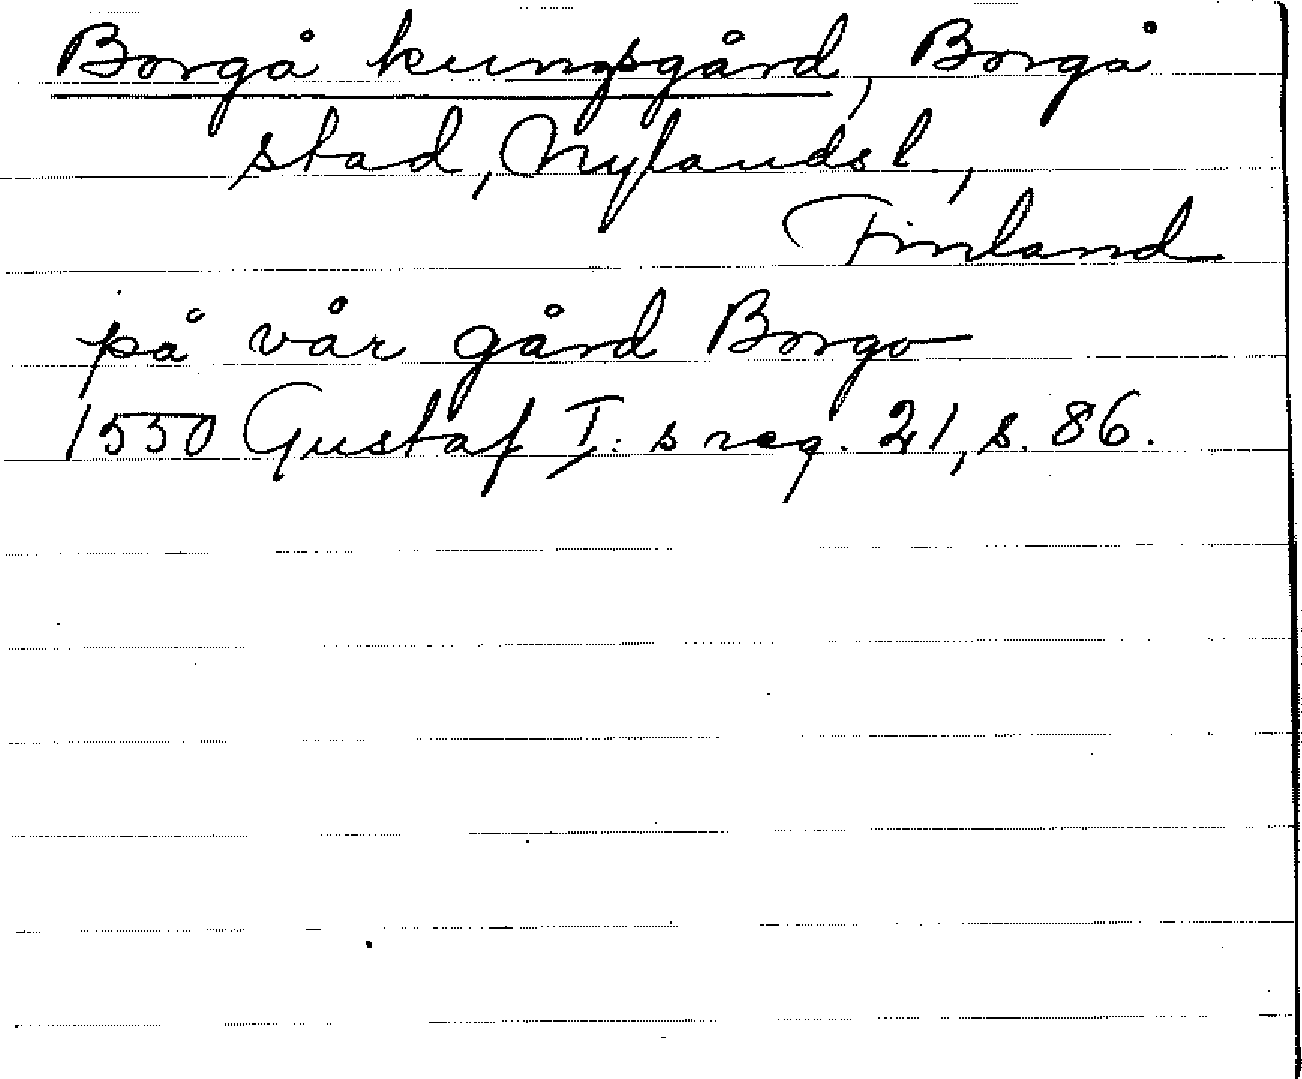 Borgå kungsgård, Borgå
stad, Nylands l,
Finland
på vår gård Borgo
1550 Gustaf I:s reg. 21, s. 86.